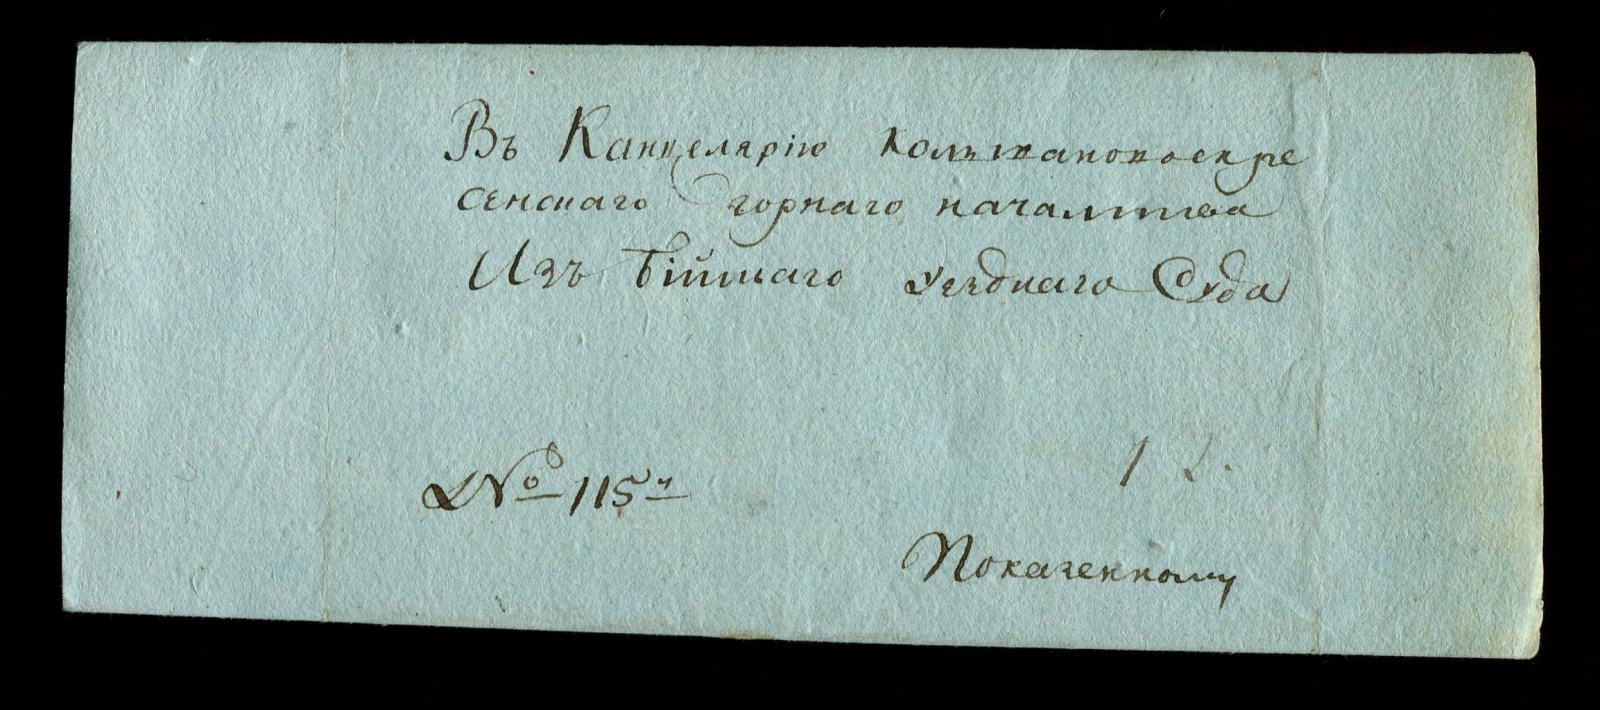 Въ Канцелярію Колывановоскре
сенскаго горнаго началства
Изъ Бійскаго уезднаго Суда
№ 115
Показенному